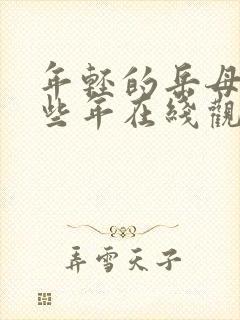 年轻的岳母
些年在线觀
弄雪天子